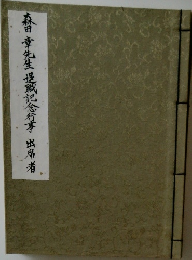 森田 章先生 退職記念行事 出席者